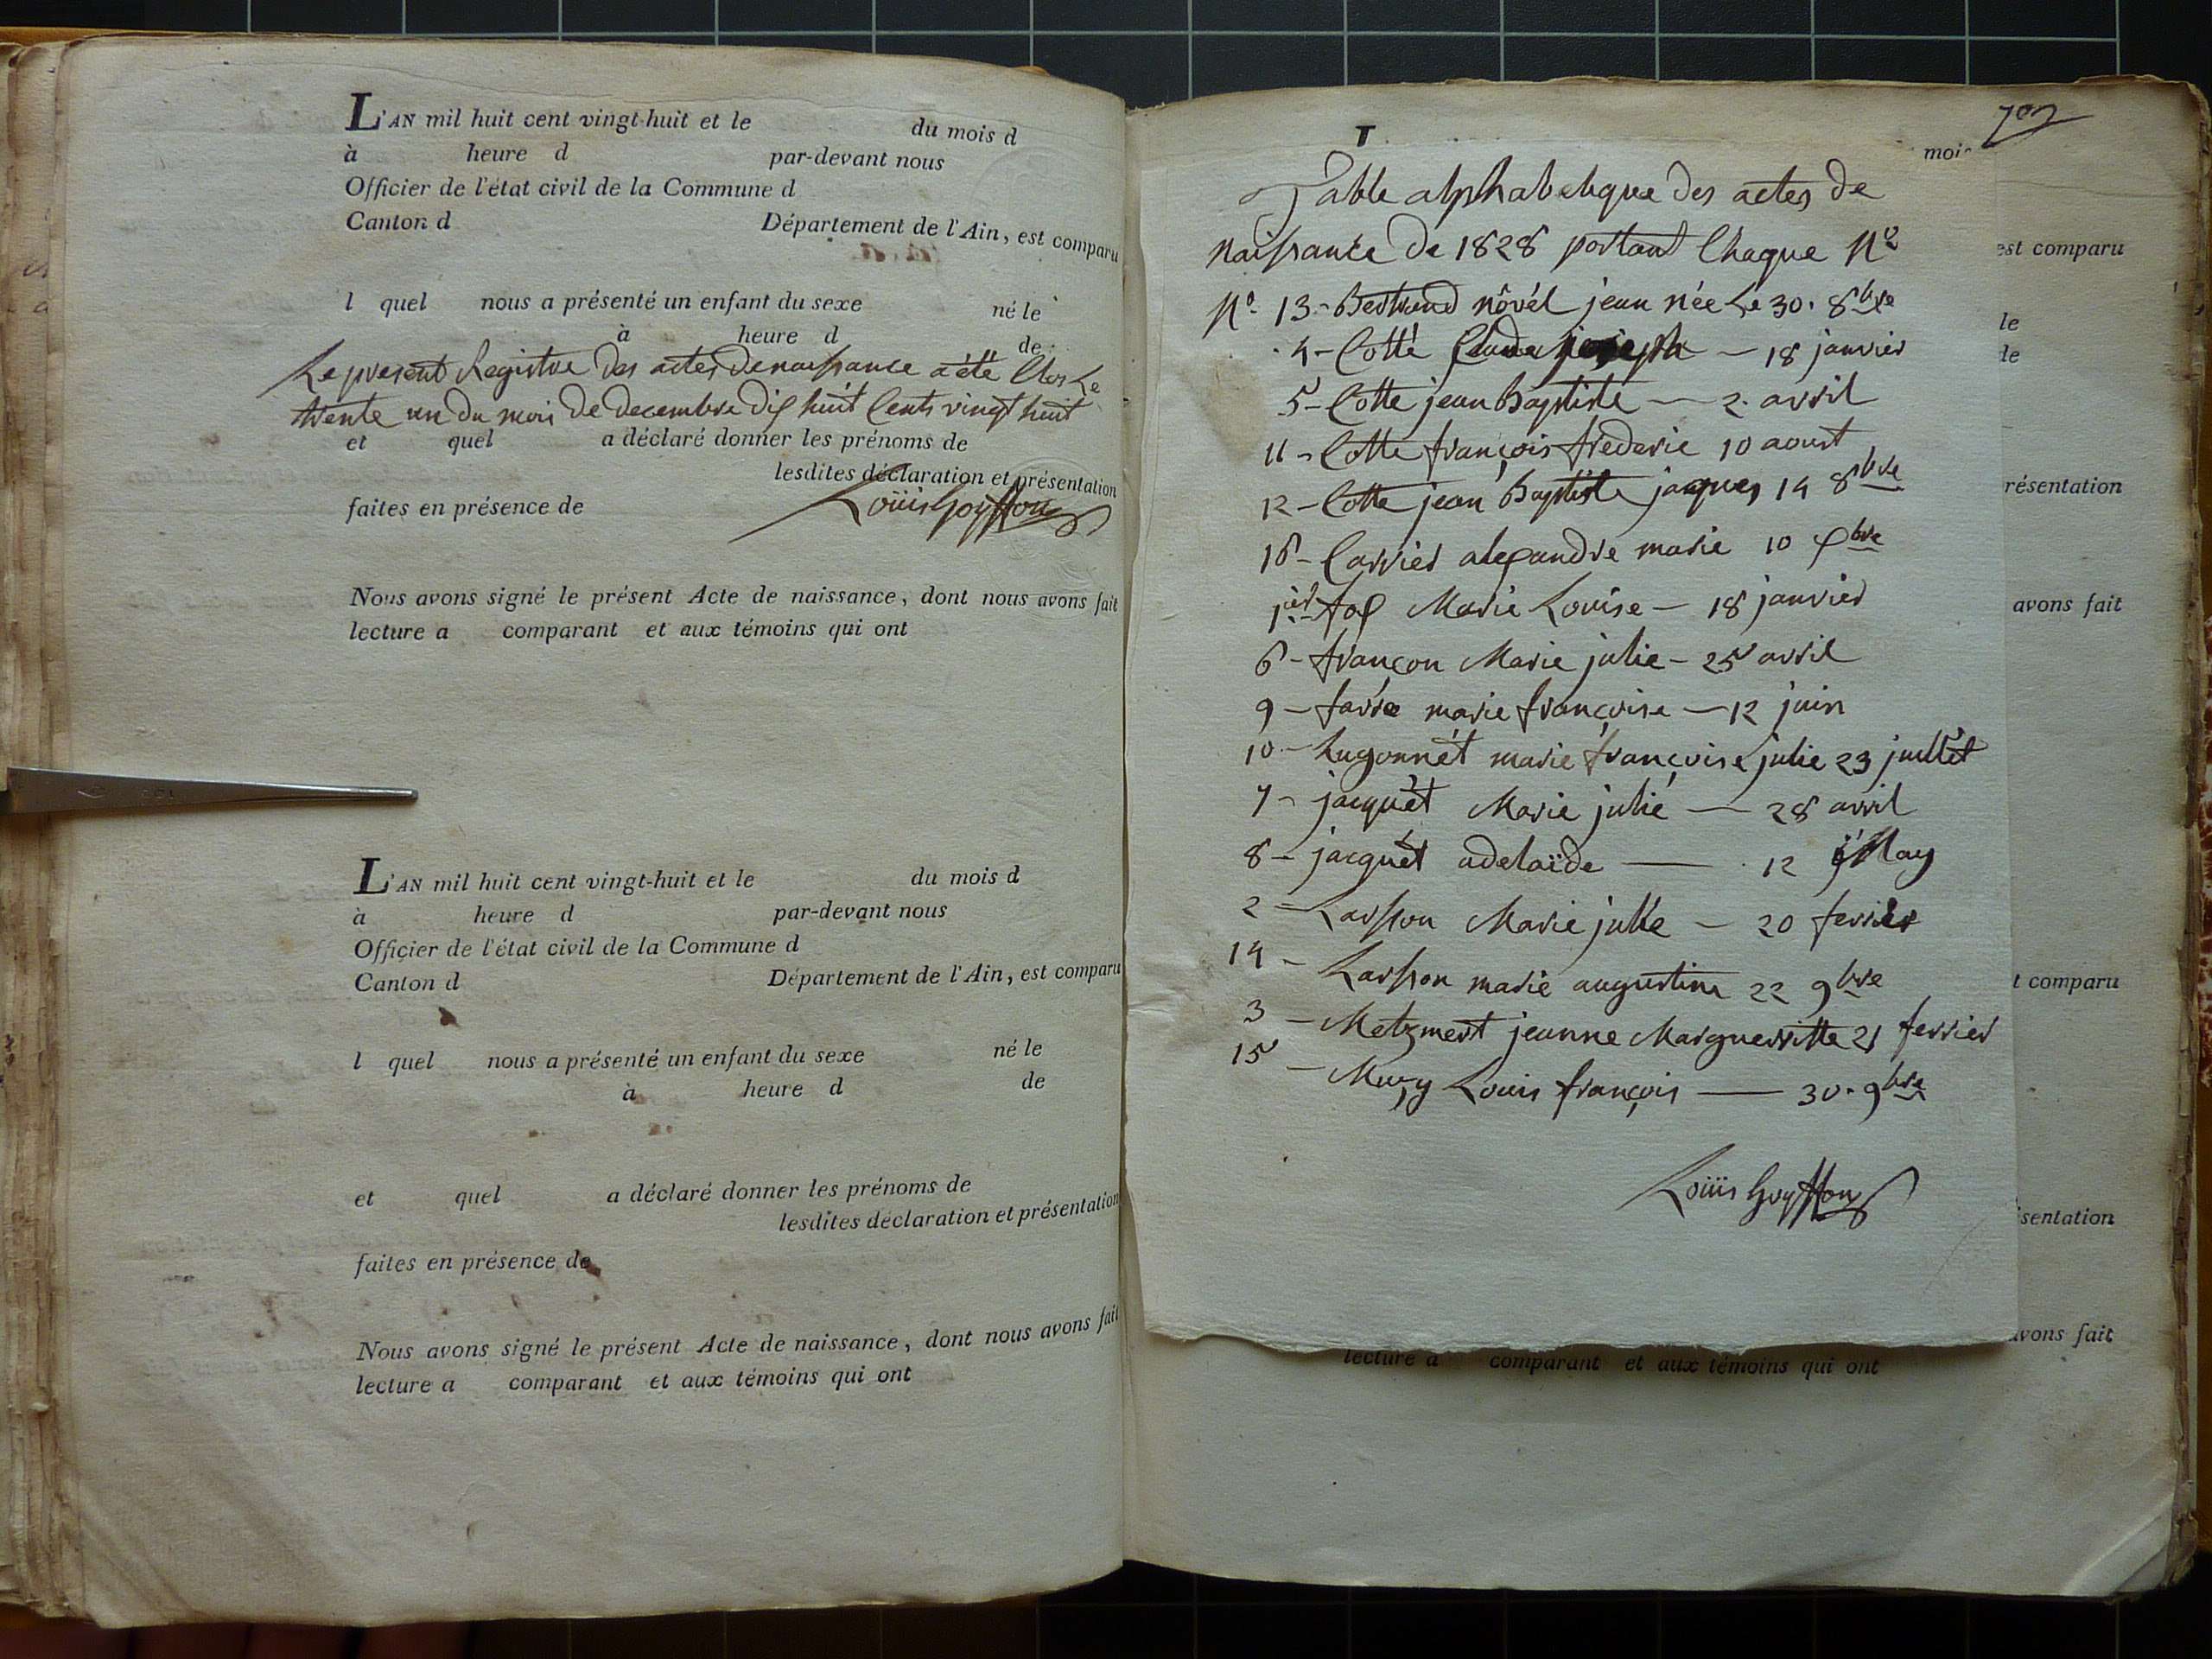 L'AN mil huit cent vingt-huit et le du mois d
à heure d par-devant nous
Officier de l'état civil de la Commune d
Canton d Département de l'Ain, est comparu
l quel nous a présenté un enfant du sexe né le
à heure d de
Le present Registre des actes de naissance a été Clos Le
trente un du mois de decembre dix huit Cents vingt huit
et quel a déclaré donner les prénoms de
lesdites déclaration et présentation
faites en présence de
Loüis Goyffon
Nous avons signé le présent Acte de naissance, dont nous avons fait
lecture a comparant et aux témoins qui ont
L'AN mil huit cent vingt-huit et le du mois d
à heure d par-devant nous
Officier de l'état civil de la Commune d
Canton d Département de l'Ain, est comparu
l quel nous a présenté un enfant du sexe né le
à heure d de
et quel a déclaré donner les prénoms de
lesdites déclaration et présentation
faites en présence de
Nous avons signé le présent Acte de naissance, dont nous avons fait
lecture a comparant et aux témoins qui ont
mois
Table alphabetique des actes de
naissance de 1828 portant Chaque N.o
N.o 13 - Bertrand nôvél jean née Le 30. 8bre
4 - Cotté Claude joseph - 18 janvier
5 - Cotte jean Baptiste - 2. avril
11 - Cotte françois frederic 10 aoust
12 - Cotte jean Baptiste jacques 14 8bre
16 - Carrier alexandre marie 10 Xbre
1.ier - fol Marie Louise - 18 janvier
6 - françon Marie julie - 25 avril
9 - favre marie françoise - 12 juin
10 - hugonnét marie françoise julie 23 juillét
7 - jacquét Marie julie - 28 avril
8 - jacquét adelaïde - 12 May
2 - Larsson Marie julie - 20 fevrier
14 - Larsson marie augustine 22 9bre
3 - Metzmert jeanne Marguerritte 21 fevrier
15 - Mury Louis françois - 30. 9bre
Loüis Goyffon
est comparu
le
de
résentation
avons fait
t comparu
sentation
avons fait
lecture a comparant et aux témoins qui ont